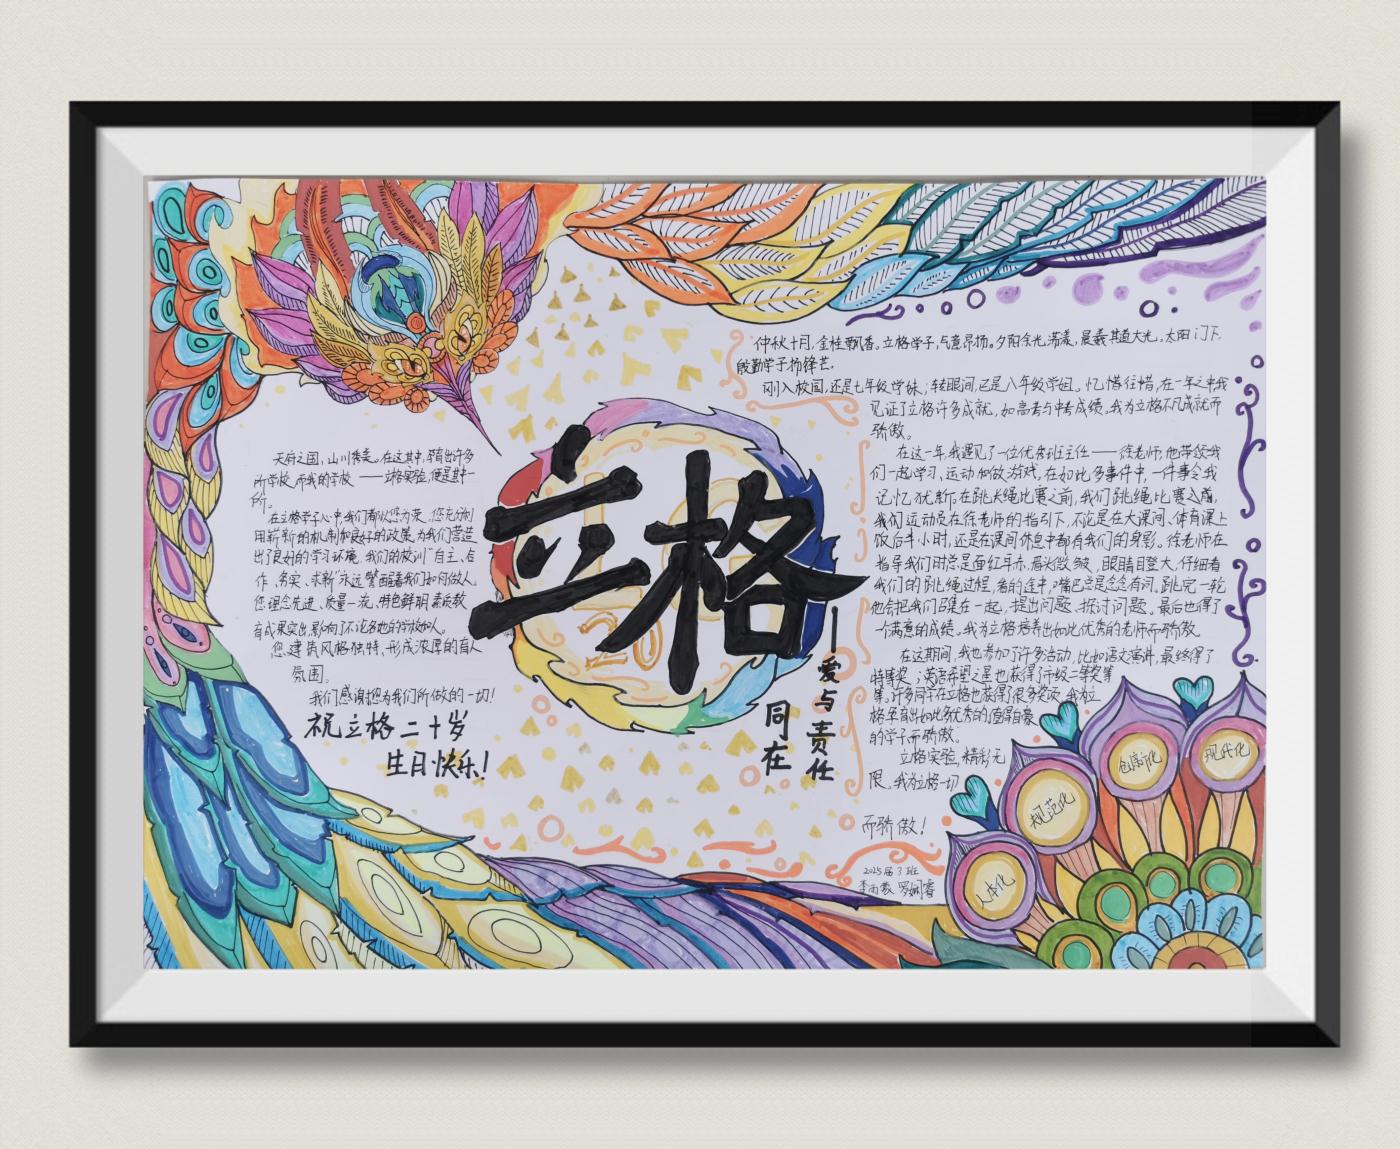 天府之国,山川秀美。在这其中,孕育出许多
所学校,而我的学校——立格实验,便是其中一
所。
在立格学子心中,我们都以您为荣。您充分利
用崭新的机制和良好的政策,为我们营造
出了良好的学习环境。我们的校训“自主、合
作、务实、求新”永远警醒着我们如何做人。
您理念先进、质量一流、特色鲜明、素质教
育成果突出,影响了不论各地的学校如人。
您建筑风格独特,形成浓厚的育人
氛围。
我们感谢您为我们所做的一切!
祝立格二十岁
生日快乐!
立格
20
——爱与责任
同在
仲秋十月,金桂飘香。立格学子,气意昂扬。夕阳余光荡漾,晨羲其道大光。太阳门下,
殷勤学子扬锋芒。
刚入校园,还是七年级学妹;转眼间,已是八年级学姐。忆惜往惜,在一年之中我
见证了立格许多成就,如高考与中考成绩。我为立格不凡成就而
骄傲。
在这一年,我遇见了一位优秀班主任——徐老师,他带领我
们一起学习、运动和做游戏,在如此多事件中,一件事令我
记忆犹新。在跳长绳比赛之前,我们跳绳比赛
我们运动员在徐老师的指引下,不论是在大课间、体育课上
饭后半小时,还是在课间休息中都有我们的身影。徐老师在
指导我们时总是面红耳赤,眉头微皱,眼睛目登大,仔细看
我们的跳绳过程,看的途中,嘴巴总是念念有词。跳完一轮
他会把我们召集在一起,提出问题、探讨问题。最后也得了
一个满意的成绩。我为立格培养出如此优秀的老师而骄傲。
在这期间,我也参加了许多活动,比如语文演讲,最终得了
特等奖;英语希望之星也获得了市级二等奖等
等。许多同学在立格也获得了很多奖项,我为立
格孕育出如此多优秀的、值得自豪
的学子而骄傲。
立格实验,精彩无
限,我为立格一切
而骄傲!
2025届3班
人本化
规范化
创新化
现代化